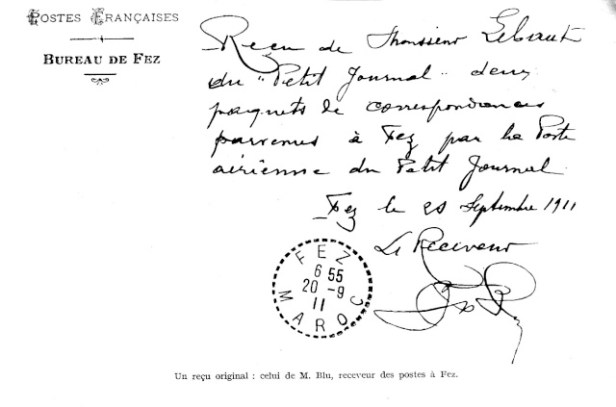 Postes Françaises
Bureau de Fez
Reçu de Monsieur Lebaut
du "Petit Journal" deux
paquets de correspondances
parvenus à Fez par la Poste
aérienne du Petit Journal
Fez le 20 Septembre 1911
Le Receveur
FEZ
6 55
20 -9
11
MAROC
Un reçu original : celui de M. Blu, receveur des postes à Fez.